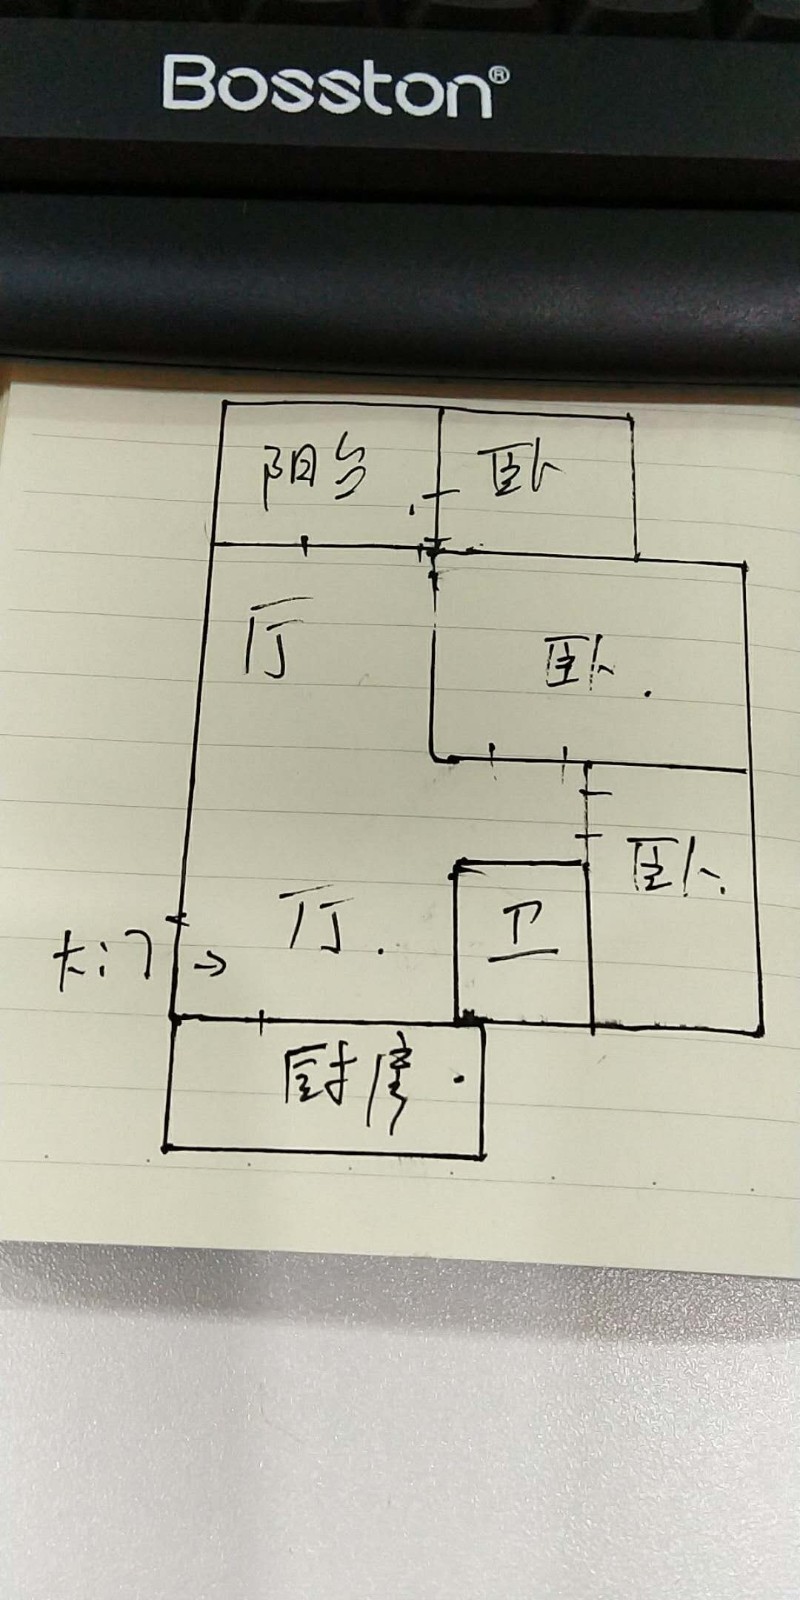 Bosston®
阳台 卧
厅
卧
卧
厅 卫
大门→
厨房